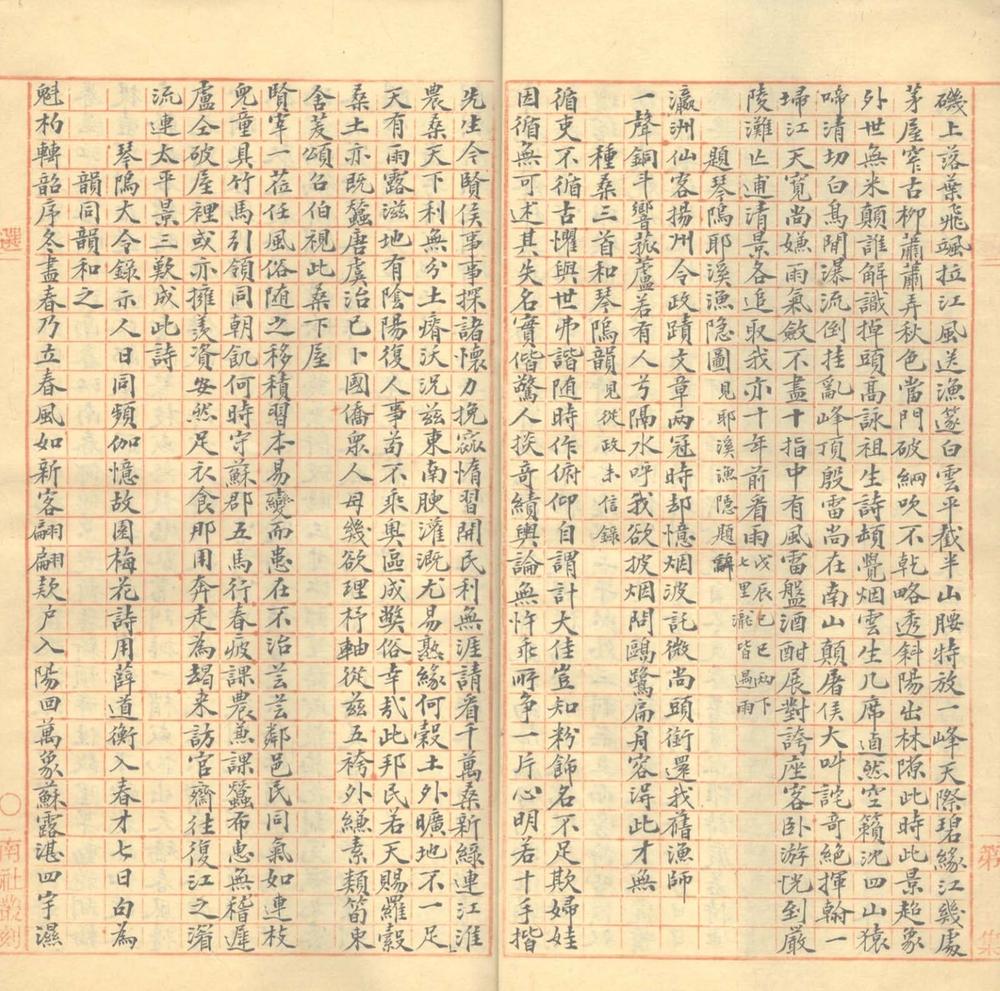 磯上落葉飛颯拉江風送漁篴白雲平截半山腰特放一峰天際碧緣江幾處
茅屋窄古柳蕭蕭弄秋色當門破網吹不乾略透斜陽出林隙此時此景超象
外世無米顛誰解識掉頭高詠祖生詩頓覺烟雲生几席逌然空籟沈四山猿
啼清切白鳥閒瀑流倒挂亂峰頂殷雷尚在南山顛屠侯大叫詫奇絕揮翰一
埽江天寬尚嫌雨氣斂不盡十指中有風雷盤酒酣展對誇座客卧游恍到嚴
陵灘亡逋清景各追取我亦十年前看雨戊辰己巳兩下七里瀧皆遇雨
題琴隖耶溪漁隐圖見耶溪漁隱題辭
瀛洲仙客揚州令政蹟文章兩冠時却憶烟波託微尚頭銜還我舊漁師
一聲銅斗響孤蘆若有人兮隔水呼我欲披烟問鷗鷺扁舟容淂此才無
種桑三首和琴隖韻見從政未信錄
循吏不循古懼與世弗諧随時作俯仰自謂計大佳豈知粉飾名不足欺婦娃
因循無可述其失名實偕驚人掞奇績輿論無忤乖所争一片心明若十手揩
先生今賢侯事事探諸懷力挽窳惰習開民利無涯請看千萬桑新綠連江淮
農桑天下利無分土瘠沃況兹東南腴灌溉尤易熟緣何穀土外曠地不一足
天有雨露滋地有陰陽復人事苟不乘奥區成獘俗幸㢤此邦民若天賜羅縠
桑土亦既蠶唐虞治已卜國僑衆人母幾欲理杼軸從兹五袴外縑素類筍束
舍茇頌召伯視此桑下屋
賢宰一莅任風俗随之移積習本易變而患在不治芸芸鄰邑民同氣如連枝
兒童具竹馬引領同朝飢何時守蘇郡五馬行春疲課農兼課蠶布惠無稽遲
盧仝破屋裡或亦擁羡資安然足衣食那用奔走為朅来訪官齋往復江之湄
流連太平景三歎成此詩
琴隖大令錄示人日同頻伽憶故園梅花詩用薛道衡入春才七日句為
韻同韻和之
魁杓轉韶序冬盡春乃立春風如新客翩翩款户入陽回萬象蘇露湛四宇濕
選
第
集
〇
南社叢刻